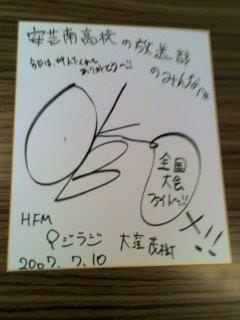 安芸南高校の放送部
のみんなへ
今日は、呼んでくれて
ありがとう〜!!
全国
大会
ファイト〜!!
HFM
9ジラジ
大窪茂樹
2007. 7. 10